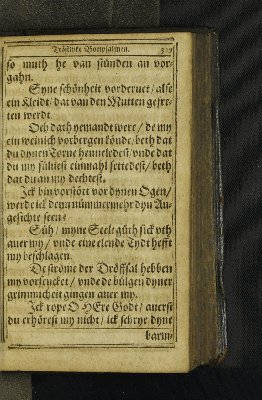 Tröstlike Bothpsalmen. 319
so muth he van stunden an vor-
gahn.
Syne schönheit vorderuet / alse
ein Kleidt / dat van den Mutten gefre-
ten werdt.
Och dath yemandt were / de my
ein weinich vorbergen könde / beth dat
du dynen Torne henneledest / vnde dat
du my sülvest einmahl settedest / beth
dat du an my dechtest.
Ick bin vorstött vor dynen Ogen /
werde ick denn nümmermehr dyn An-
gesichte seen?
Süh / myne Seele güth sick vth
auer my / vnde eine elende Tydt hefft
my beschlagen.
De ströme der Dröffsal hebben
my vorsencket / vnde de bülgen dyner
grimmicheit gingen auer my.
Ick rope O HEre Godt / auerst
du erhörest my nicht / ick schrye dyne
barm-